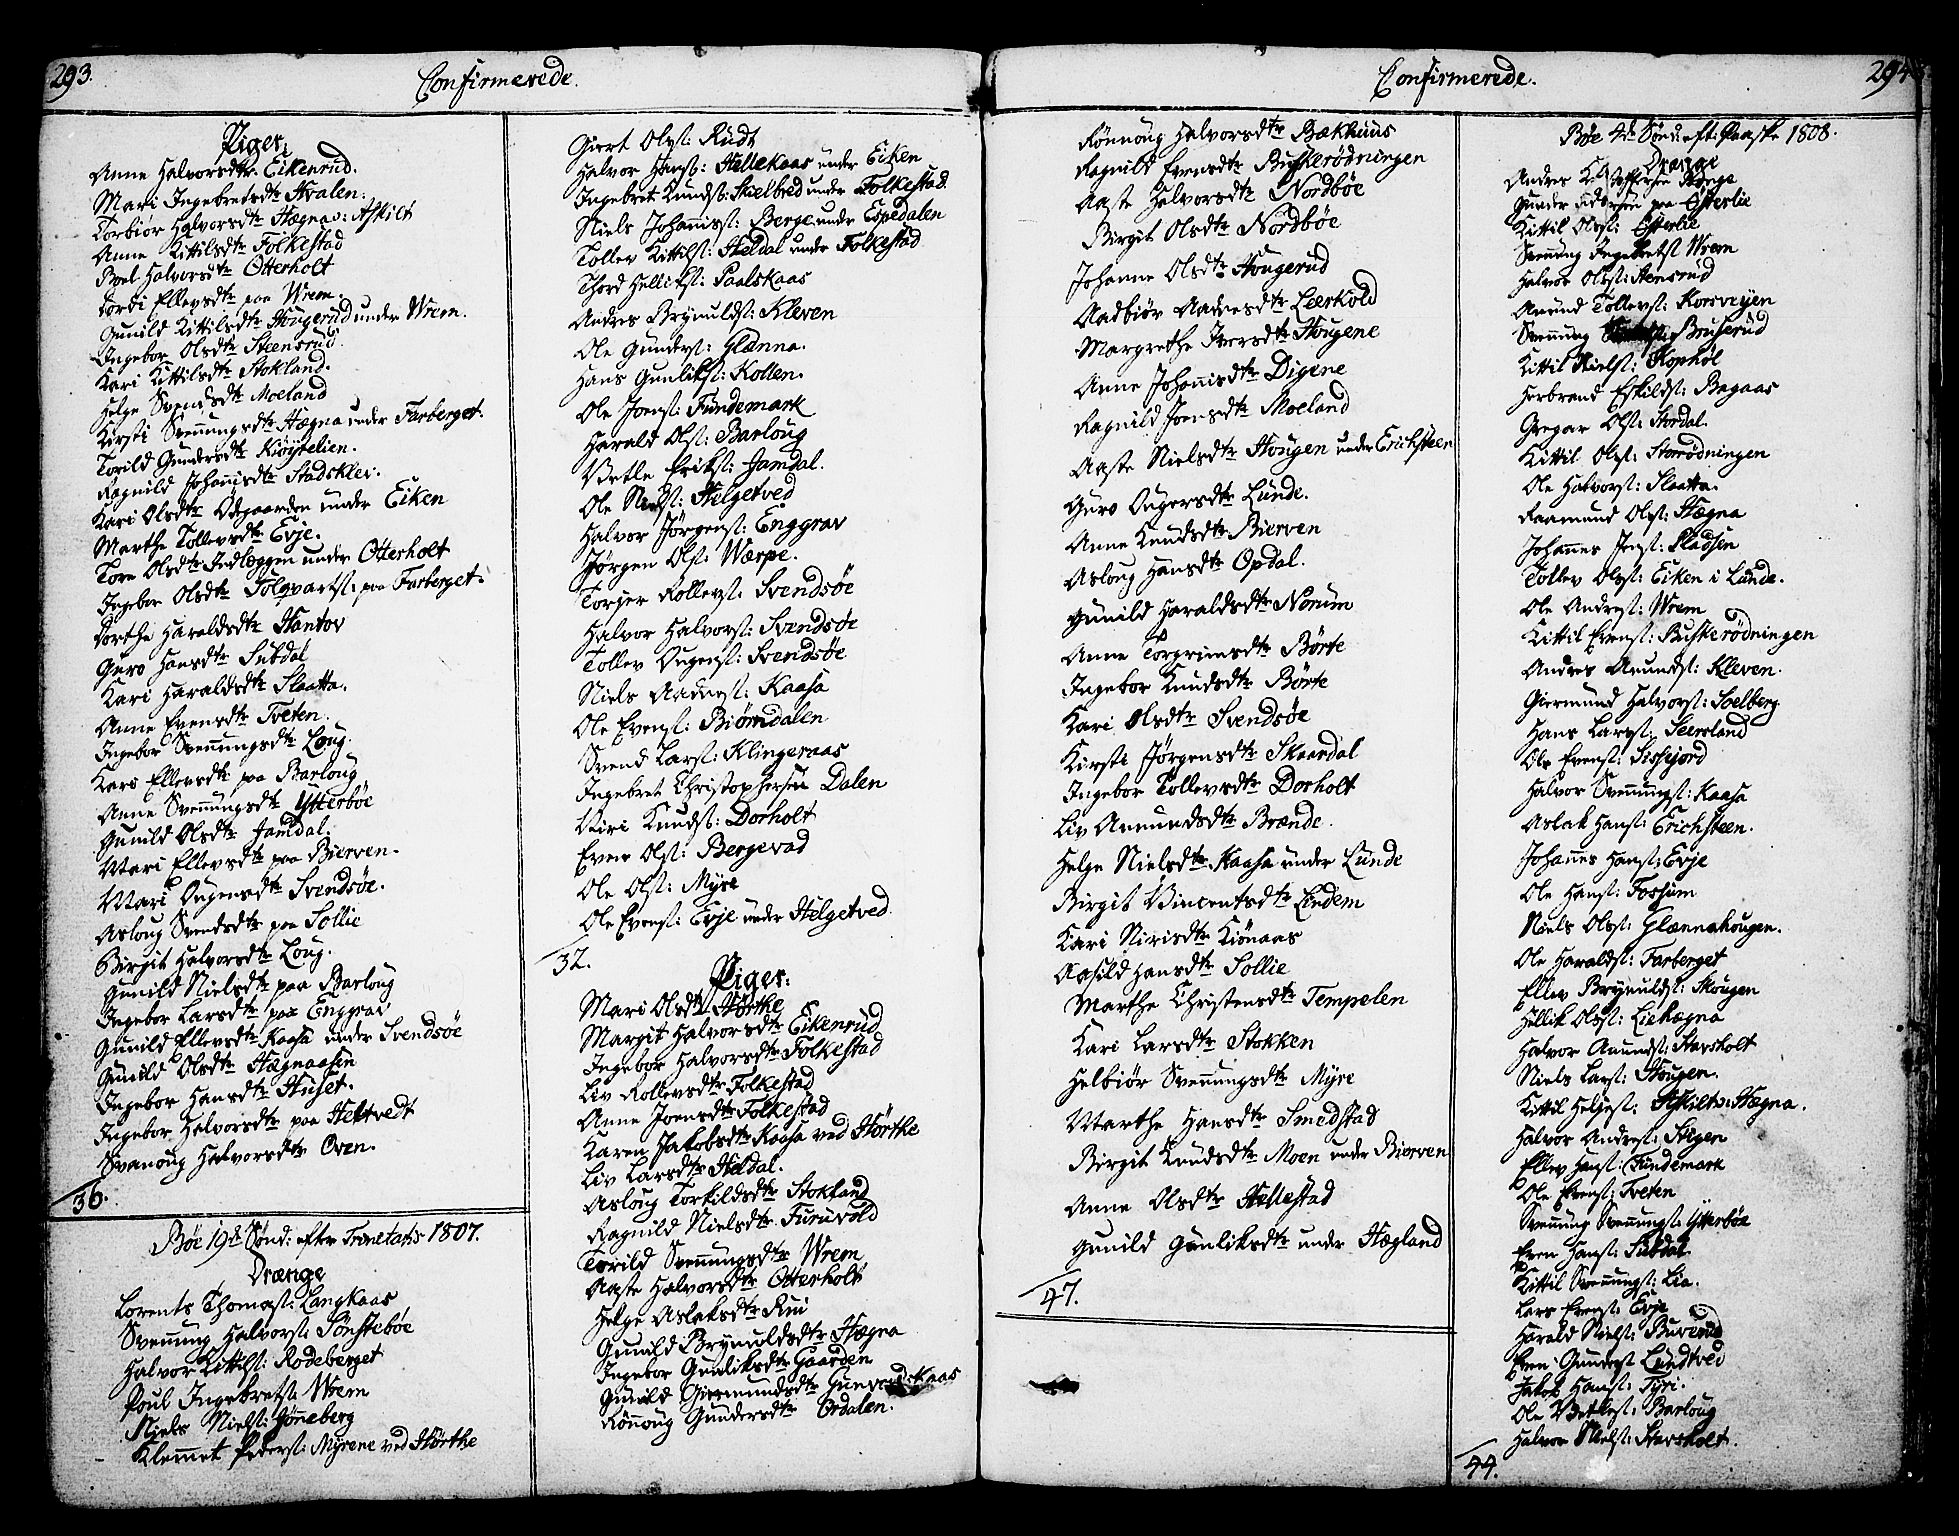 293.
Confirmerede.
Piger.
Anne Halvorsdtr Eikenrud.
Mari Ingebretsdtr Hvalen.
Torbiør Halvorsdtr Hægna v: Askilt
Anne Kittilsdtr Folkestad
Boel Halvorsdtr Otterholt
Tordi Ellevsdtr paa Wrem.
Gunild Kittilsdtr Hougerud under Wrem.
Ingebor Olsdtr Steensrud.
Kari Kittilsdtr Stokland.
Helge Svendsdtr Moeland
Kirsti Svennungsdtr Hægna under Farberget.
Torild Gundersdtr Kiøystelien.
Ragnild Johannisdtr Stadsklev.
Kari Olsdtr Ødegaarden under Eiken
Marthe Tollevsdtr Evje.
Tore Olsdtr Indlæggen under Otterholt
Ingebor Olsdtr Folqvartst: paa Farberget.
Dorthe Haraldsdtr Hantov
Guro Hansdtr Subdal
Kari Haraldsdtr Slaatta.
Anne Evensdtr Tveten.
Ingebor Svennungsdtr Loug.
Kari Ellevsdtr paa Barloug
Anne Svennungsdtr Ytterbøe
Gunild Olsdtr Jamdal.
Mari Ellevsdtr paa Bierven.
Mari Ougensdtr Svendsøe.
Asloug Svendsdtr paa Sollie
Birgit Halvorsdtr Loug.
Gunild Nielsdtr paa Barloug
Ingebor Larsdtr paa Enggrav
Gunild Ellevsdtr Kaasa under Svendsøe
Gunild Olsdtr Hægnaasen
Ingebor Hansdtr Huset.
Ingebor Halvorsdtr paa Hektvedt
Svanoug Halvorsdtr Oven.
36.
Bøe 19de Sønd: efter Trinetatis 1807.
Drænge
Lorents Thomast: Langkaas
Svennung Halvorst: Sønstebøe
Halvor Kittilst: Rodeberget
Poul Ingebretst: Wrem
Niels Nielst: Jønneberg
Klemmet Pederst: Myrene ved Hørthe
Giert Olst: Rudt
Halvor Hanst: Hellekaas under Eiken
Ingebret Kundst: Skielbred under Folkestad.
Niels Johannist: Berge under Espedalen
Tollev Kittilst: Heldal under Folkestad
Thord Hellikst: Paalskaas
Andres Brynuldst: Kleven
Ole Gunderst: Glænna.
Hans Gunlikst: Kollen.
Ole Joenst: Fundemark
Harald Olst: Barloug
Vetle Erikst: Jamdal.
Ole Nielst: Helgetved
Halvor Jørgenst: Enggrav
Jørgen Olst: Wærpe.
Torger Rollevst: Svendsøe
Halvor Halvorst: Svendsøe
Tollev Ougenst: Svendsøe
Niels Aadnest: Kaasa
Ole Evenst: Biørndalen
Svend Larst: Klingeraas
Ingebret Christophersen Dalen
Niri Knudst: Dorholt
Even Olst: Bergevad
Ole Olst: Myre
Ole Evenst: Evje under Helgetved
32.
Piger:
Mari Olsdtr Hørthe
Margit Halvorsdtr Eikenrud
Ingebor Halvorsdtr Folkestad
Liv Rollevsdtr Folkestad
Anne Joensdtr Folkestad
Karen Jakobsdtr Kaasa ved Hørthe
Liv Larsdtr Heldal.
Asloug Torkildsdtr Stokland
Ragnild Nielsdtr Furuvold
Torild Svennungsdtr Wrem
Aaste Halvorsdtr Otterholt
Helge Aslaksdtr Rui
Gunild Brynuldsdtr Hægna
Ingebor Gunliksdtr Gaarden
Gunild Giermundsdtr Gunvordskaas
Rønnoug Gundersdtr Ordalen.
Confirmerede.
294
Rønnoug Halvorsdtr Bækhuus
Ragnild Evensdtr Buskerødningen
Aaste Halvorsdtr Nordbøe
Birgit Olsdtr Nordbøe
Johanne Olsdtr Hougerud
Aadbiør Aadnesdtr Leerkold
Margrethe Iversdtr Hougene
Anne Johannisdtr Digene
Ragnild Joensdtr Moeland
Aaste Nielsdtr Hougen under Erichsteen
Guro Ougersdtr Lunde.
Anne Knudsdtr Bierven
Asloug Hansdtr Opdal.
Gunild Haraldsdtr Norum
Anne Torgrimsdtr Børte
Ingebor Knudsdtr Børte
Kari Olsdtr Svendsøe
Kirsti Jørgensdtr Skaardal
Ingebor Tollevsdtr Dorholt
Liv Anundsdtr Brænde.
Helge Nielsdtr Kaasa under Lunde
Birgit Vincentsdtr Lindem
Kari Nirisdtr Kiønaas
Aasild Hansdtr Sollie
Marthe Christensdtr Tempelen
Kari Larsdtr Stokken
Helbiør Svennungsdtr Myre
Marthe Hansdtr Smedstad
Birgit Knudsdtr Moen under Bierven
Anne Olsdtr Hellestad
Gunild Gunliksdtr under Hægland
47.
Bøe 4de Sønd: eft: Paaske 1808.
Drænge
Andres Kittoffersen Hørge
Gunder paa Østerlie
Kittil Olst: Østerlie
Svennung Ingebretst Wrem
Halvor Olst: Stensrud
Anund Tollevst: Korsvejen
Svennung Bruserud
Kittil Nielst: Kophøl
Herbrand Eskildst: Bagaas
Gregar Olst: Stordal.
Kittil Olst: Storødningen
Ole Halvorst: Slaatta.
Raamund Olst: Hægna
Johannes Jenst: Pladsen
Tollev Olst: Eiken i Lunde.
Ole Andrest: Wrem
Kittil Evenst: Buskerødningen
Andres Anundst: Kleven.
Giermund Halvorst: Solberg
Hans Larst: Seersland
Ole Evenst: Sisjord
Halvor Svennungst: Kaasa
Aslak Hanst: Erichsteen.
Johannes Hanst: Evje
Ole Hanst: Fossum
Niels Olst: Glænnahougen.
Ole Haraldst: Farberget
Ellev Brynuldst: Skougen
Hellik Olst: Liehægna
Halvor Anundst: Stavsholt
Niels Larst: Hougen.
Kittil Helgest: Askiltv: Hægna.
Halvor Andrest: Stigen
Ellev Hanst: Fundemark
Ole Evenst: Tveten
Svennung Svennungst: Ytterbøe
Even Hanst: Subdal
Kittil Svennungst: Lia.
Lars Evenst: Evje
Harald Nielst: Buverud
Even Gunderst Lundtved
Jakob Hanst: Tyri.
Ole Vetlest: Barloug
Halvor Nielst: Stavsholt.
44.